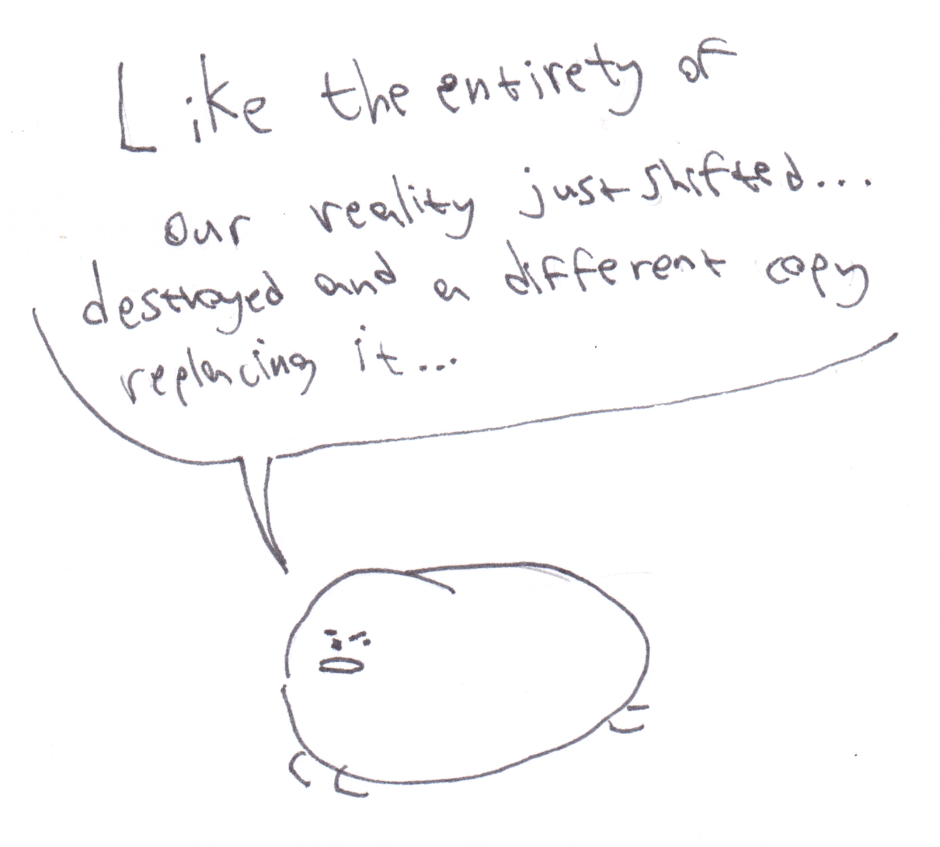 Like the entirety of
our reality just shifted...
destroyed and a different copy
replacing it...